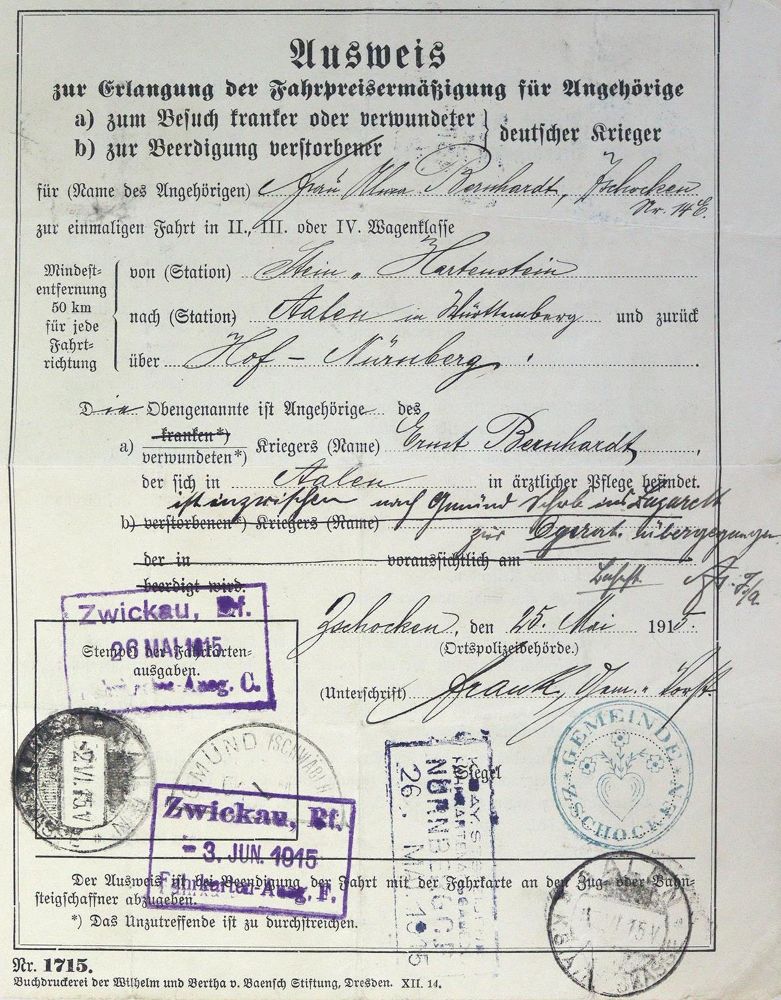 Ausweis
zur Erlangung der Fahrpreisermäßigung für Angehörige
a) zum Besuch kranker oder verwundeter
b) zur Beerdigung verstorbener
deutscher Krieger
für (Name des Angehörigen) Frau Bernhardt, Zschocken
Nr. 14 E.
zur einmaligen Fahrt in II., III. oder IV. Wagenklasse
Mindest-
entfernung
50 km
für jede
Fahrt-
richtung
von (Station) Stein - Hartenstein
nach (Station) Aalen in Württemberg und zurück
über Hof - Nürnberg.
Die Obengenannte ist Angehörige des
a) kranken*)
verwundeten*) Kriegers (Name) Ernst Bernhardt,
der sich in Aalen in ärztlicher Pflege befindet.
ist inzwischen nach Gmünd ins Lazarett
b) verstorbenen*) Kriegers (Name)
zur übergegangen
der in voraussichtlich am
beerdigt wird.
Zschocken, den 25. Mai 1915.
(Ortspolizeibehörde.)
(Unterschrift) Frank, Gem. Vorst.
Zwickau, Bf.
26 MAI 1915
Fahrkarten-Ausg. C.
Stempel der Fahrkarten-
ausgaben.
AALEN
-2.VI.15.V
GMÜND (SCHWÄB.)
Zwickau, Bf.
- 3. JUN. 1915
Fahrkarten-Ausg. F.
NÜRNBERG
26. MAI 1915
Siegel
GEMEINDE
ZSCHOCKEN
Der Ausweis ist bei Beendigung der Fahrt mit der Fahrkarte an den Zug- oder Bahn-
steigschaffner abzugeben.
*) Das Unzutreffende ist zu durchstreichen.
Nr. 1715.
Buchdruckerei der Wilhelm und Bertha v. Baensch Stiftung, Dresden. XII. 14.